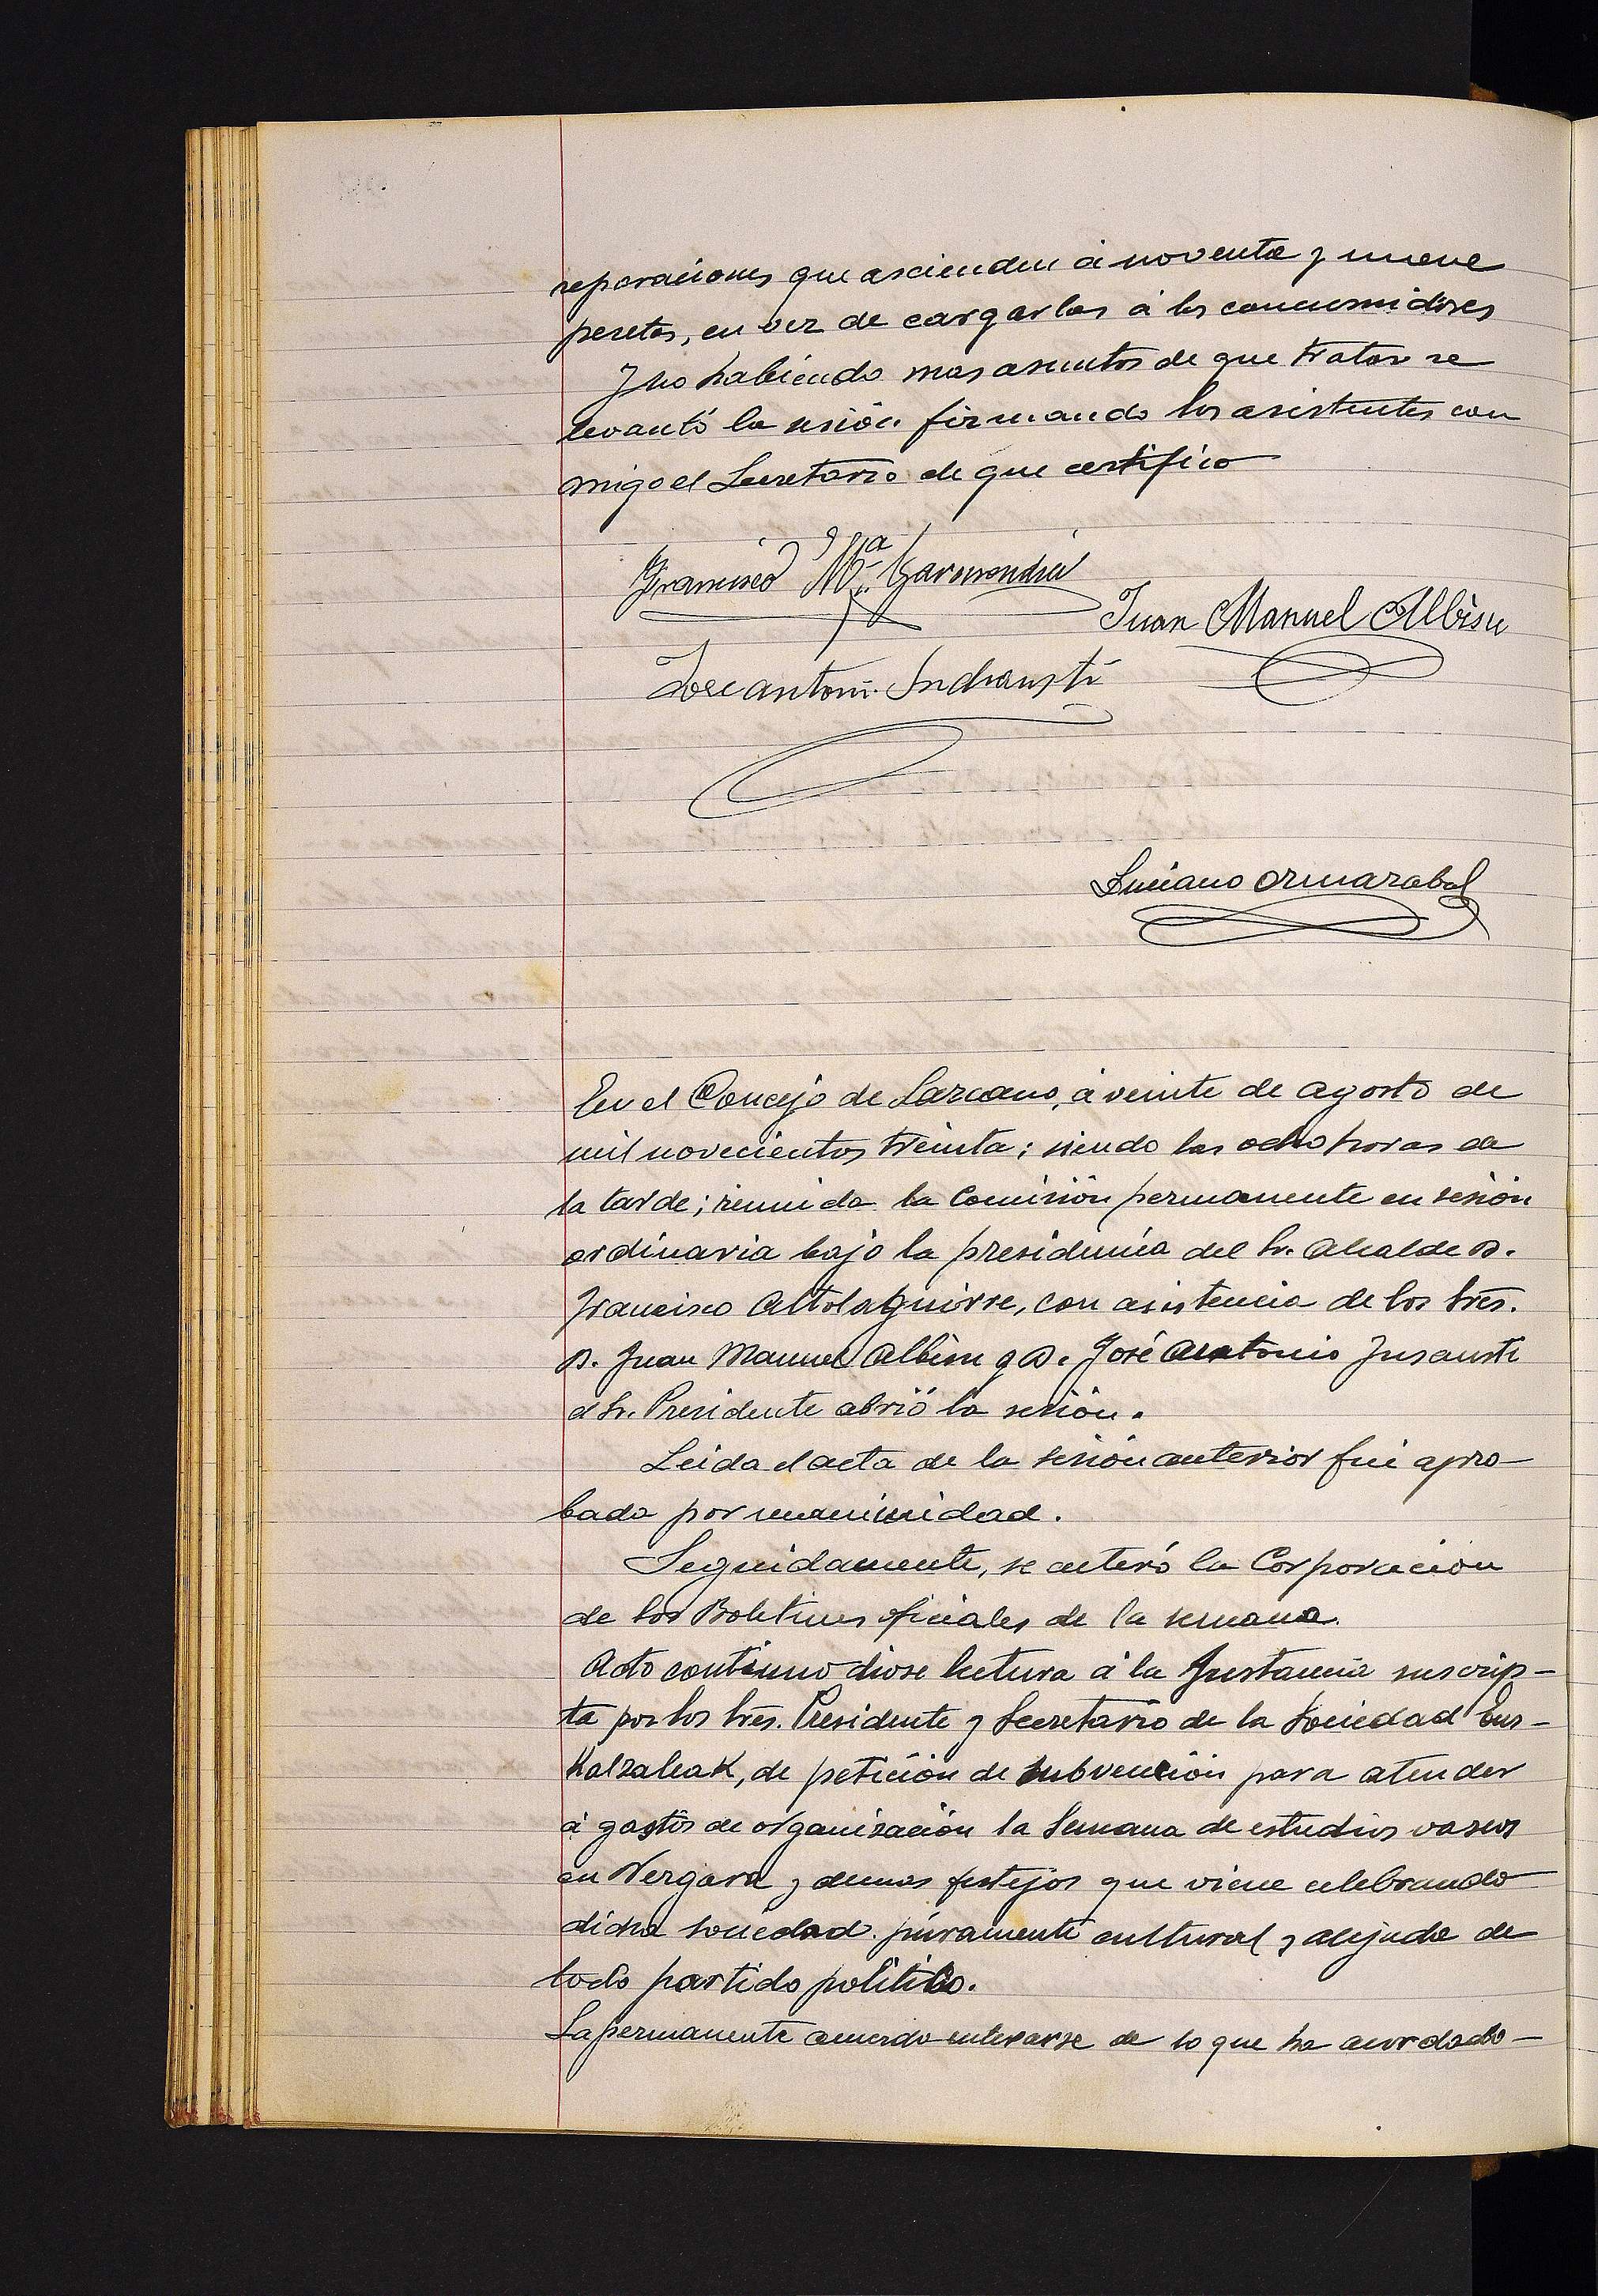 reparaciones que ascienden á noventa y nueve
pesetas, en vez de cargarlas á los consumidores
Y no habiendo mas asuntos de que tratar se
levantó la sesión firmando los asistentes con
migo el Secretario de que certifico
Francisco Mª
Juan Manuel Albisu
Jose antoni
Luciano Ormazabal
En el Concejo de Lazcano, á veinte de agosto de
mil novecientos treinta; siendo las ocho horas de
la tarde; reunida la Comisión permanente en sesión
ordinaria bajo la presidencia del Sr. Alcalde D.
Francisco Altolaguirre, con asistencia de los Sres.
D. Juan Manuel Albisu y D. José Antonio Insausti
el Sr. Presidente abrió la sesión.
Leida el acta de la sesión anterior fué apro-
bada por unanimidad.
Seguidamente, se enteró la Corporación
de los Boletines oficiales de la semana.
Acto continuo diose lectura á la Instancia suscrip-
ta por los Sres. Presidente y Secretario de la Sociedad Eus-
Kalzaleak, de petición de subvención para atender
á gastos de organización la Semana de estudios vascos
en Vergara y demas festejos que viene celebrando
dicha sociedad puramente cultural y alejada de
todo partido politico.
La permanente acuerdo enterarse de lo que ha acordado-